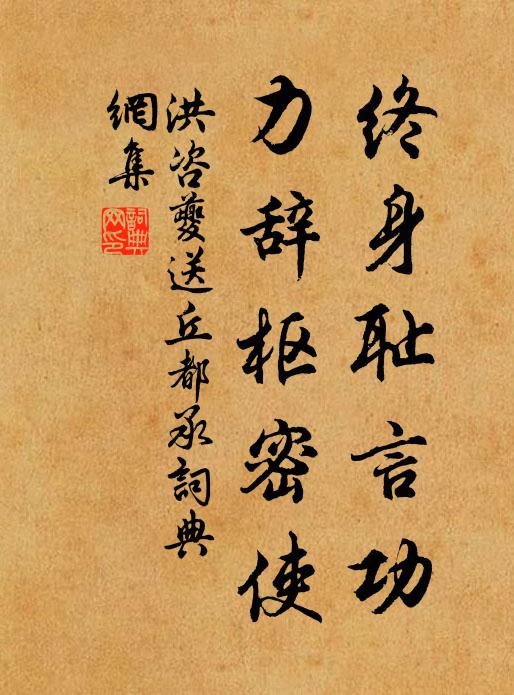 终身耻言功
力辞枢密使
洪咨夔送丘都承詞典
網集
詞典
网印